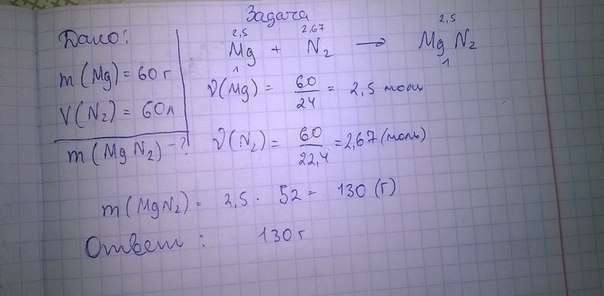 Задача
Дано:
m (Mg) = 60 г
V(N2) = 60л
m(MgN2) - ?
2,5 2,67 2,5
Mg + N2 → MgN2
1 1
ν(Mg) = 60/24 = 2,5 моль
ν(N2) = 60/22,4 = 2,67 (моль)
m(MgN2) = 2,5 · 52 = 130 (г)
Ответ : 130 г